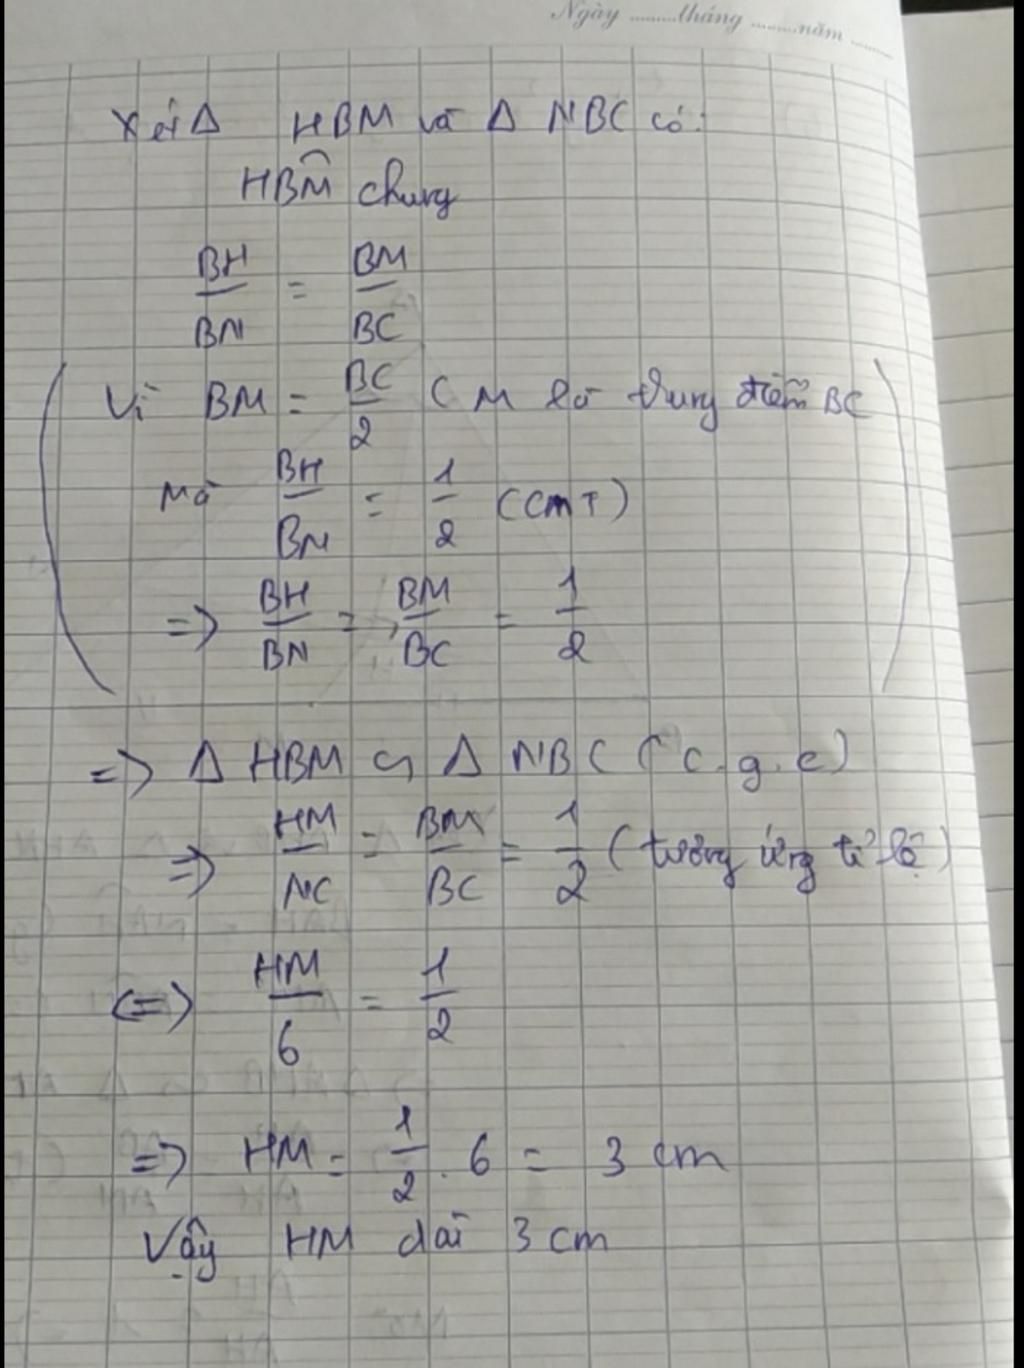 Ngày ........tháng ........năm ........
Xét Δ HBM và Δ NBC có:
HBM̂ chung
BH/BN = BM/BC
(Vì BM = BC/2 (M là trung điểm BC
Mà BH/BN = 1/2 (cmT)
=> BH/BN = BM/BC = 1/2)
=> Δ HBM ∽ Δ NBC (c.g.c)
=> HM/NC = BM/BC = 1/2 (tương ứng tỉ lệ)
<=> HM/6 = 1/2
=> HM = 1/2 . 6 = 3 cm
Vậy HM dài 3 cm